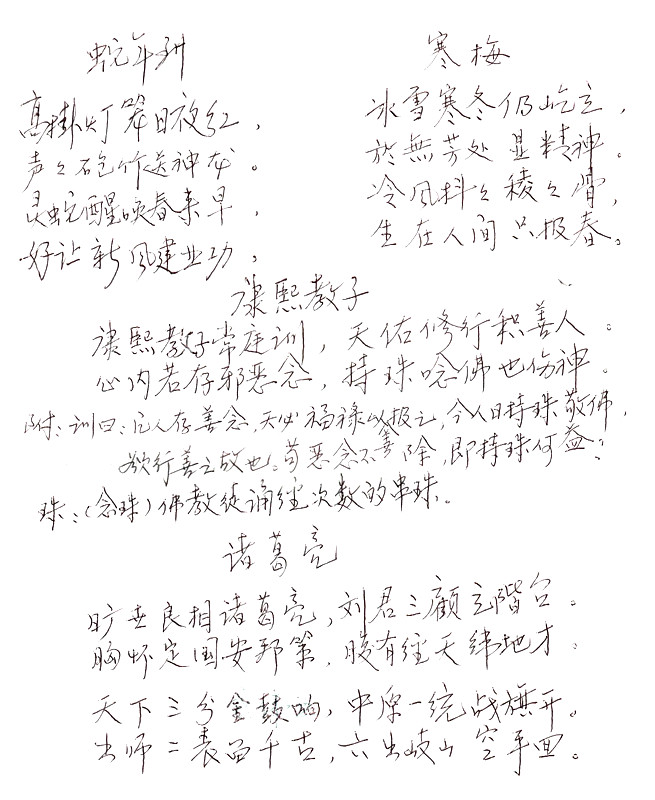 蛇年到
高掛灯笼日夜红，
声々炮竹送神龙。
灵蛇醒唤春来早，
好让新风建业功。
寒梅
冰雪寒冬仍屹立，
於無芳处显精神。
冷风抖々稜々骨，
生在人间只报春。
康熙教子
康熙教子常庭训，天佑修行积善人。
心内若存邪恶念，持珠唸佛也伤神。
附：训曰：凡人存善念，天必福禄以报之，今人日持珠敬佛，
欲行善之故也，苟恶念不善除，即持珠何益？
珠：（念珠）佛教徒诵经次数的串珠。
诸葛亮
旷世良相诸葛亮，刘君三顾立階台。
胸怀定国安邦策，腹有经天纬地才。
天下三分金鼓响，中原一统战旗开。
出师二表留千古，六出岐山空手回。